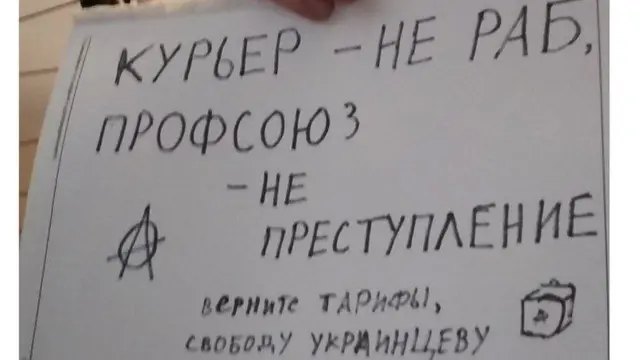 КУРЬЕР - НЕ РАБ,
ПРОФСОЮЗ
- НЕ
ПРЕСТУПЛЕНИЕ
верните ТАРИФЫ,
СВОБОДУ УКРАИНЦЕВУ